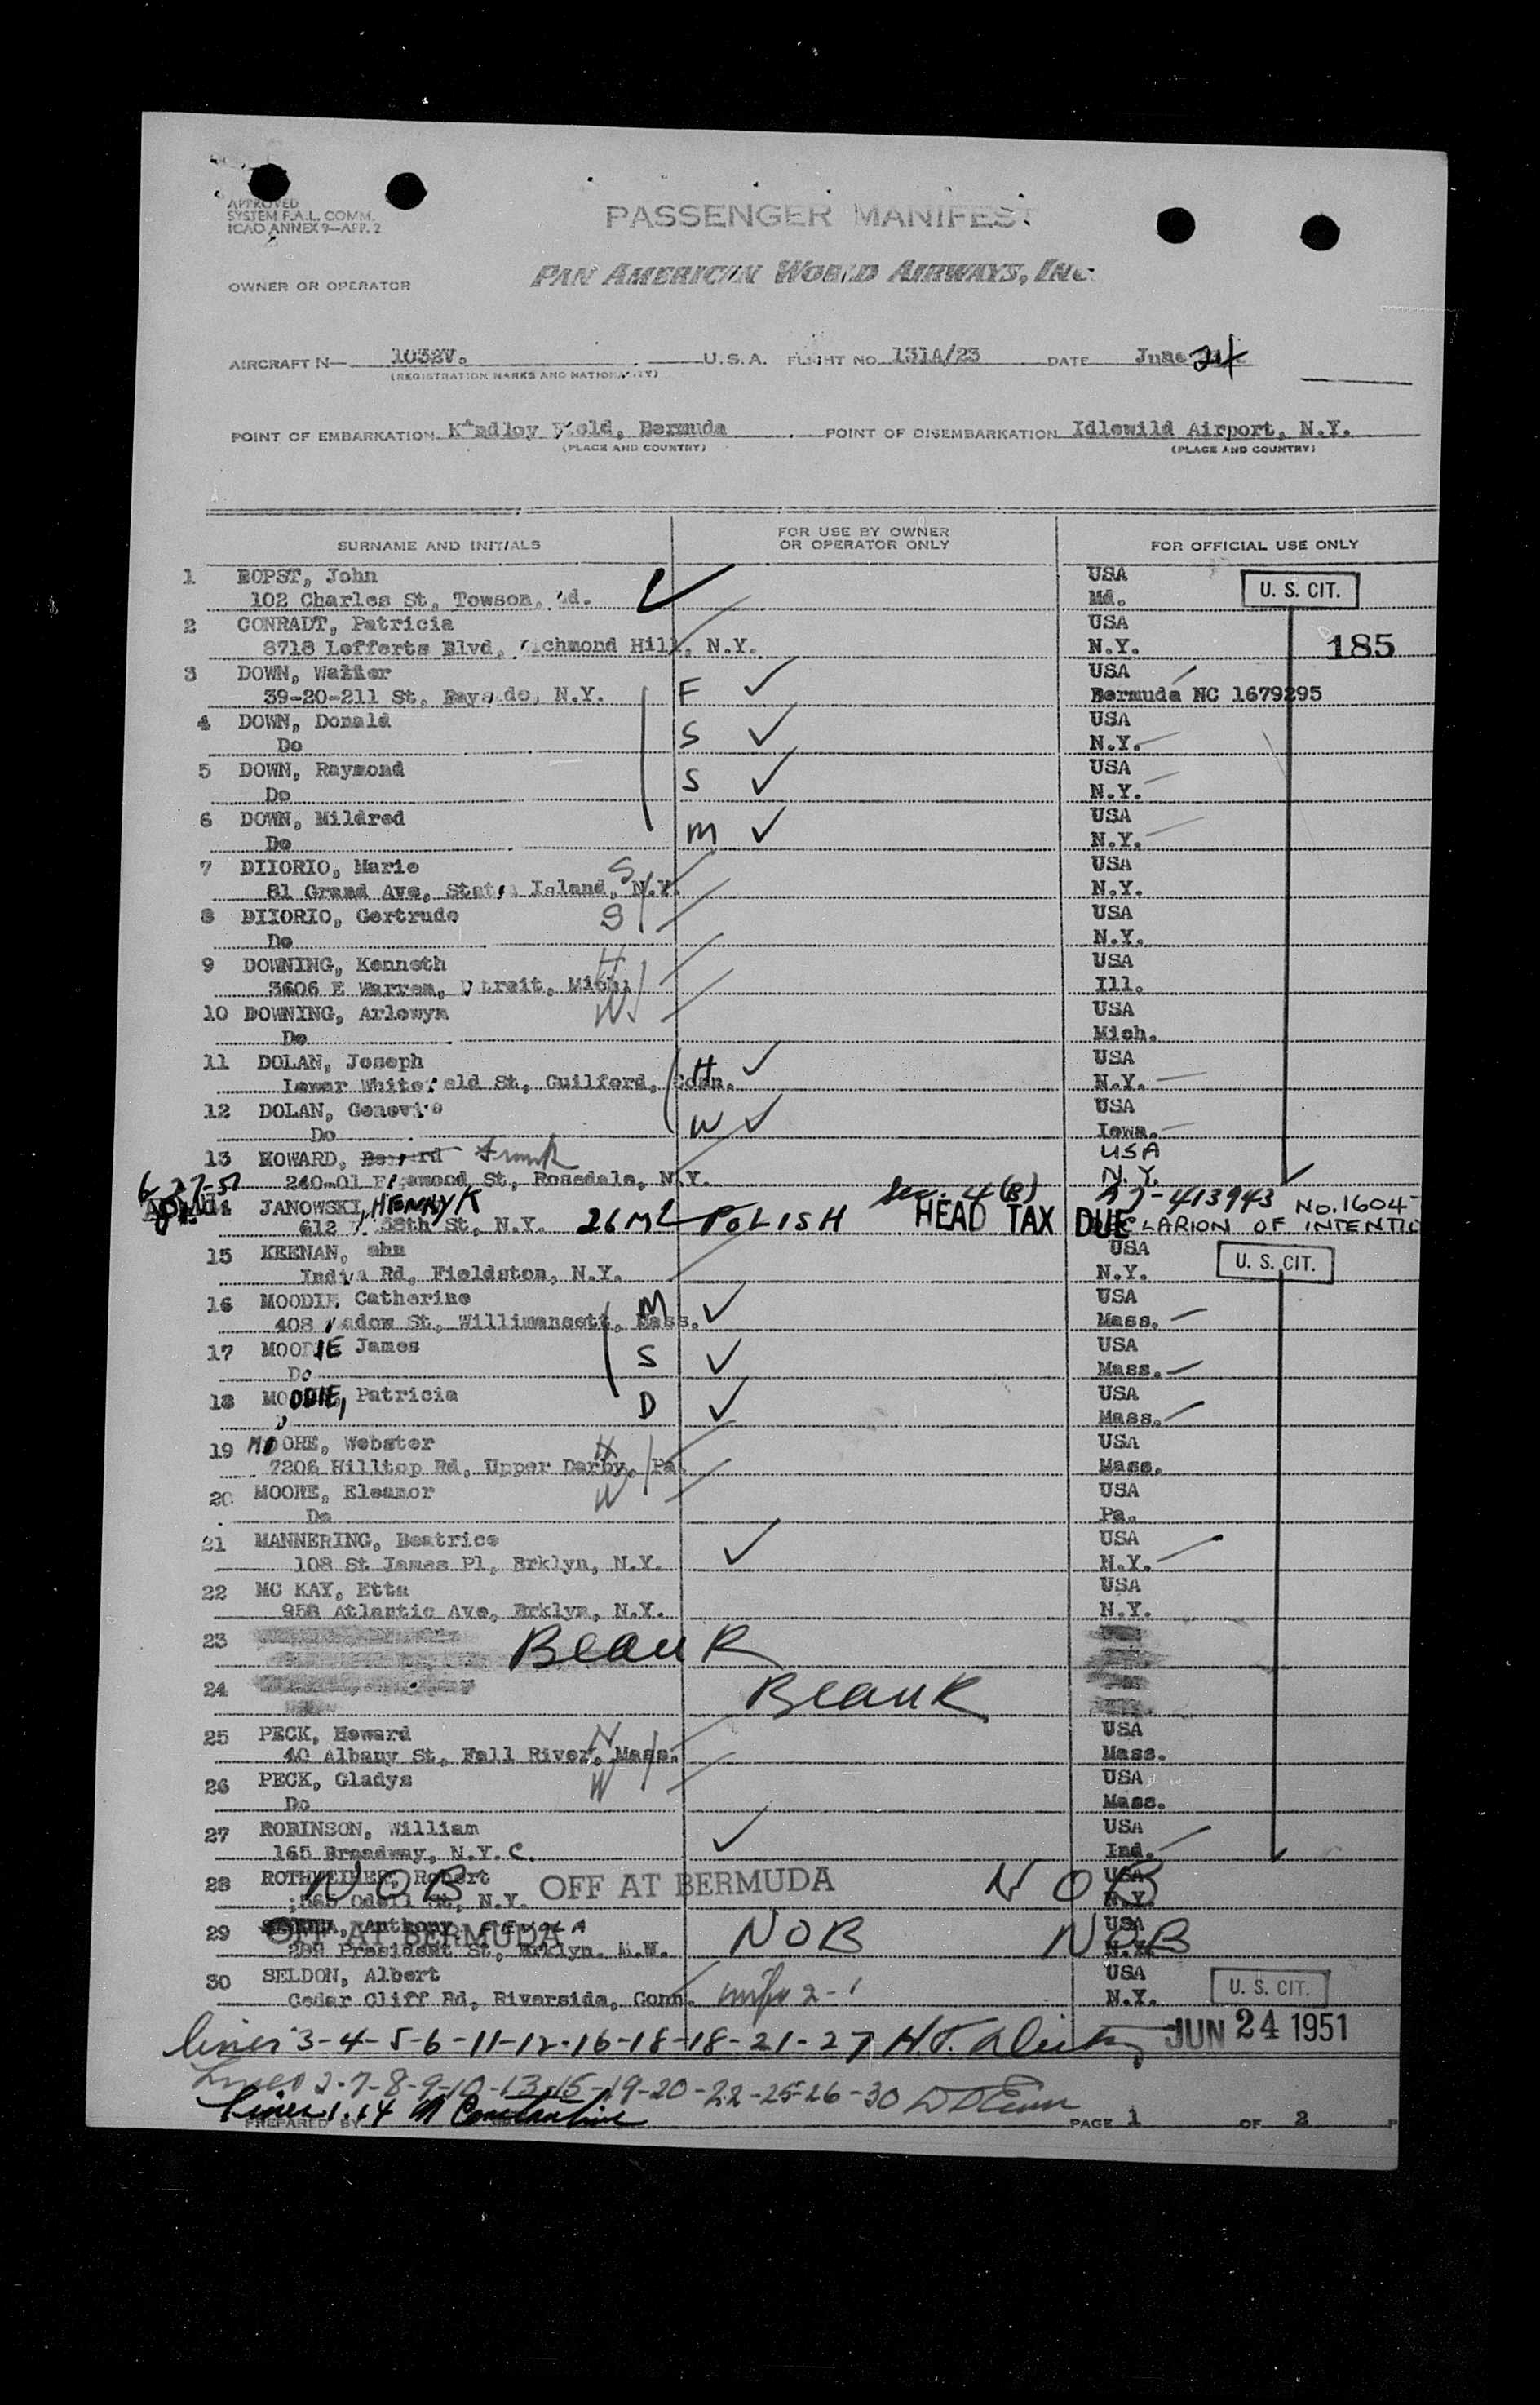 APPROVED
SYSTEM F.A.L. COMM.
ICAO ANNEX 9—APP. 2
PASSENGER MANIFEST
OWNER OR OPERATOR
PAN AMERICAN WORLD AIRWAYS, INC.
AIRCRAFT N— 1032V. U.S.A. FLIGHT NO. 131A/23 DATE June 24
(REGISTRATION MARKS AND NATIONALITY)
POINT OF EMBARKATION Kindley Field, Bermuda POINT OF DISEMBARKATION Idlewild Airport, N.Y.
(PLACE AND COUNTRY) (PLACE AND COUNTRY)
SURNAME AND INITIALS FOR USE BY OWNER OR OPERATOR ONLY FOR OFFICIAL USE ONLY
1 BOPST, John USA U. S. CIT.
102 Charles St, Towson, Md. Md.
2 CONRADT, Patricia USA
8718 Lefferts Blvd, Richmond Hill, N.Y. N.Y. 185
3 DOWN, Walter USA
39-20-211 St, Bayside, N.Y. F Bermuda NC 1679295
4 DOWN, Donald USA
Do S N.Y.
5 DOWN, Raymond USA
Do S N.Y.
6 DOWN, Mildred USA
Do M N.Y.
7 DIIORIO, Marie S USA
81 Grand Ave, Staten Island, N.Y. N.Y.
8 DIIORIO, Gertrude S USA
Do N.Y.
9 DOWNING, Kenneth H USA
3606 E Warren, Detroit, Mich. Ill.
10 DOWNING, Arlewyn W USA
Do Mich.
11 DOLAN, Joseph H USA
Lower Whitefield St, Guilford, Conn. N.Y.
12 DOLAN, Genevive USA
Do W Iowa.
13 HOWARD, Frank USA
240-01 St, Rosedale, N.Y. N.Y.
6-27-51
JANOWSKI, HENRYK Sec. 4(B) 27-413943 No. 1604-
612 58th St, N.Y. 26 ML POLISH HEAD TAX DUE CLARION OF INTENTIO
15 KEENAN, ohn USA U. S. CIT.
India Rd, Fieldston, N.Y. N.Y.
16 MOODIE Catherine M USA
408 adow St, Willimansett, Mass. Mass.
17 MOODIE James USA
Do S Mass.
18 MOODIE, Patricia D USA
Mass.
19 MOORE, Webster H USA
7206 Hilltop Rd, Upper Darby, Pa. Mass.
20 MOORE, Eleanor W USA
Do Pa.
21 MANNERING, Beatrice USA
108 St James Pl, Brklyn, N.Y. N.Y.
22 MC KAY, Etta USA
958 Atlantic Ave, Brklyn, N.Y. N.Y.
23 Blank
24 Blank
25 PECK, Howard H USA
40 Albany St, Fall River, Mass. Mass.
26 PECK, Gladys W USA
Do Mass.
27 ROBINSON, William USA
165 Broadway, N.Y.C. Ind.
28 ROTHHEIMER, Robert NOB OFF AT BERMUDA NOB USA
Odell St, N.Y. N.Y.
29 Anthony OFF AT BERMUDA NOB NOB USA
299 President St, Brklyn. N.Y.
30 SELDON, Albert USA U. S. CIT.
Cedar Cliff Rd, Riverside, Conn. N.Y.
lines 3-4-5-6-11-12-16-18-18-21-27 JUN 24 1951
Lines 2-7-8-9-10-13-15-19-20-22-25-26-30
Lines 1.14 M Constantine
PREPARED BY PAGE 1 OF 2